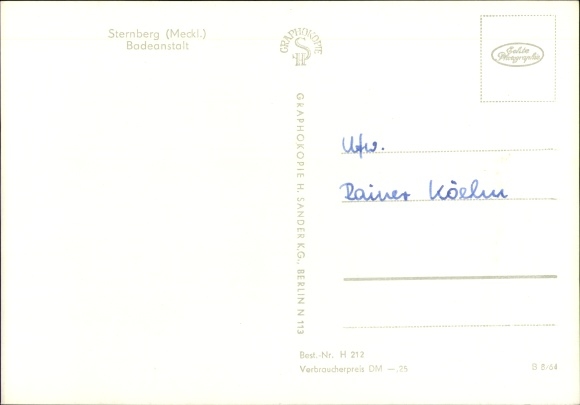 Sternberg (Meckl.)
Badeanstalt
GRAPHOKOPIE
H S
Echte
Photographie
GRAPHOKOPIE H. SANDER K.G., BERLIN N 113
Ufw.
Rainer
Best.-Nr. H 212
Verbraucherpreis DM —,25
B 8/64